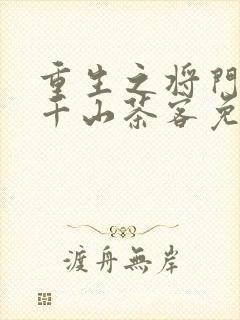 重生之将門
千山茶客免
渡舟無岸